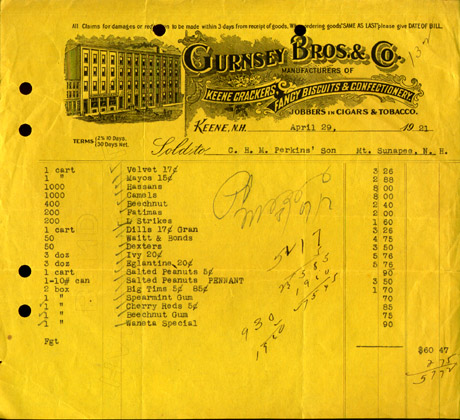 All Claims for damages or reduction to be made within 3 days from receipt of goods. When ordering goods "SAME AS LAST" please give DATE OF BILL.
GURNSEY BROS. & CO.
MANUFACTURERS OF
KEENE CRACKERS,
FANCY BISCUITS & CONFECTIONERY.
JOBBERS IN CIGARS & TOBACCO.
KEENE, N.H. April 29, 1921
TERMS { 2% 10 Days, 30 Days Net.
Sold to C. H. M. Perkins' Son Mt. Sunapee, N. H.
1 cart Velvet 17¢ 3 26
1 " Mayos 15¢ 2 88
1000 Hassans 8 00
1000 Camels 8 00
400 Beechnut 2 40
200 Fatimas 2 00
200 L Strikes 1 60
1 cart Dills 17¢ Gran 3 26
50 Waitt & Bonds 4 75
50 Dexters 3 50
3 doz Ivy 20¢ 5 76
3 doz Eglantine 20¢ 5 75
1 cart Salted Peanuts 5¢ 90
1-10# can Salted Peanuts PENNANT 3 50
2 box Big Time 5¢ 85¢ 1 70
1 " Spearmint Gum 70
1 " Cherry Reds 5¢ 85
1 " Beechnut Gum 75
1 " Waneta Special 90
Fgt
$60 47
2 75
57 72
5217
930
1920